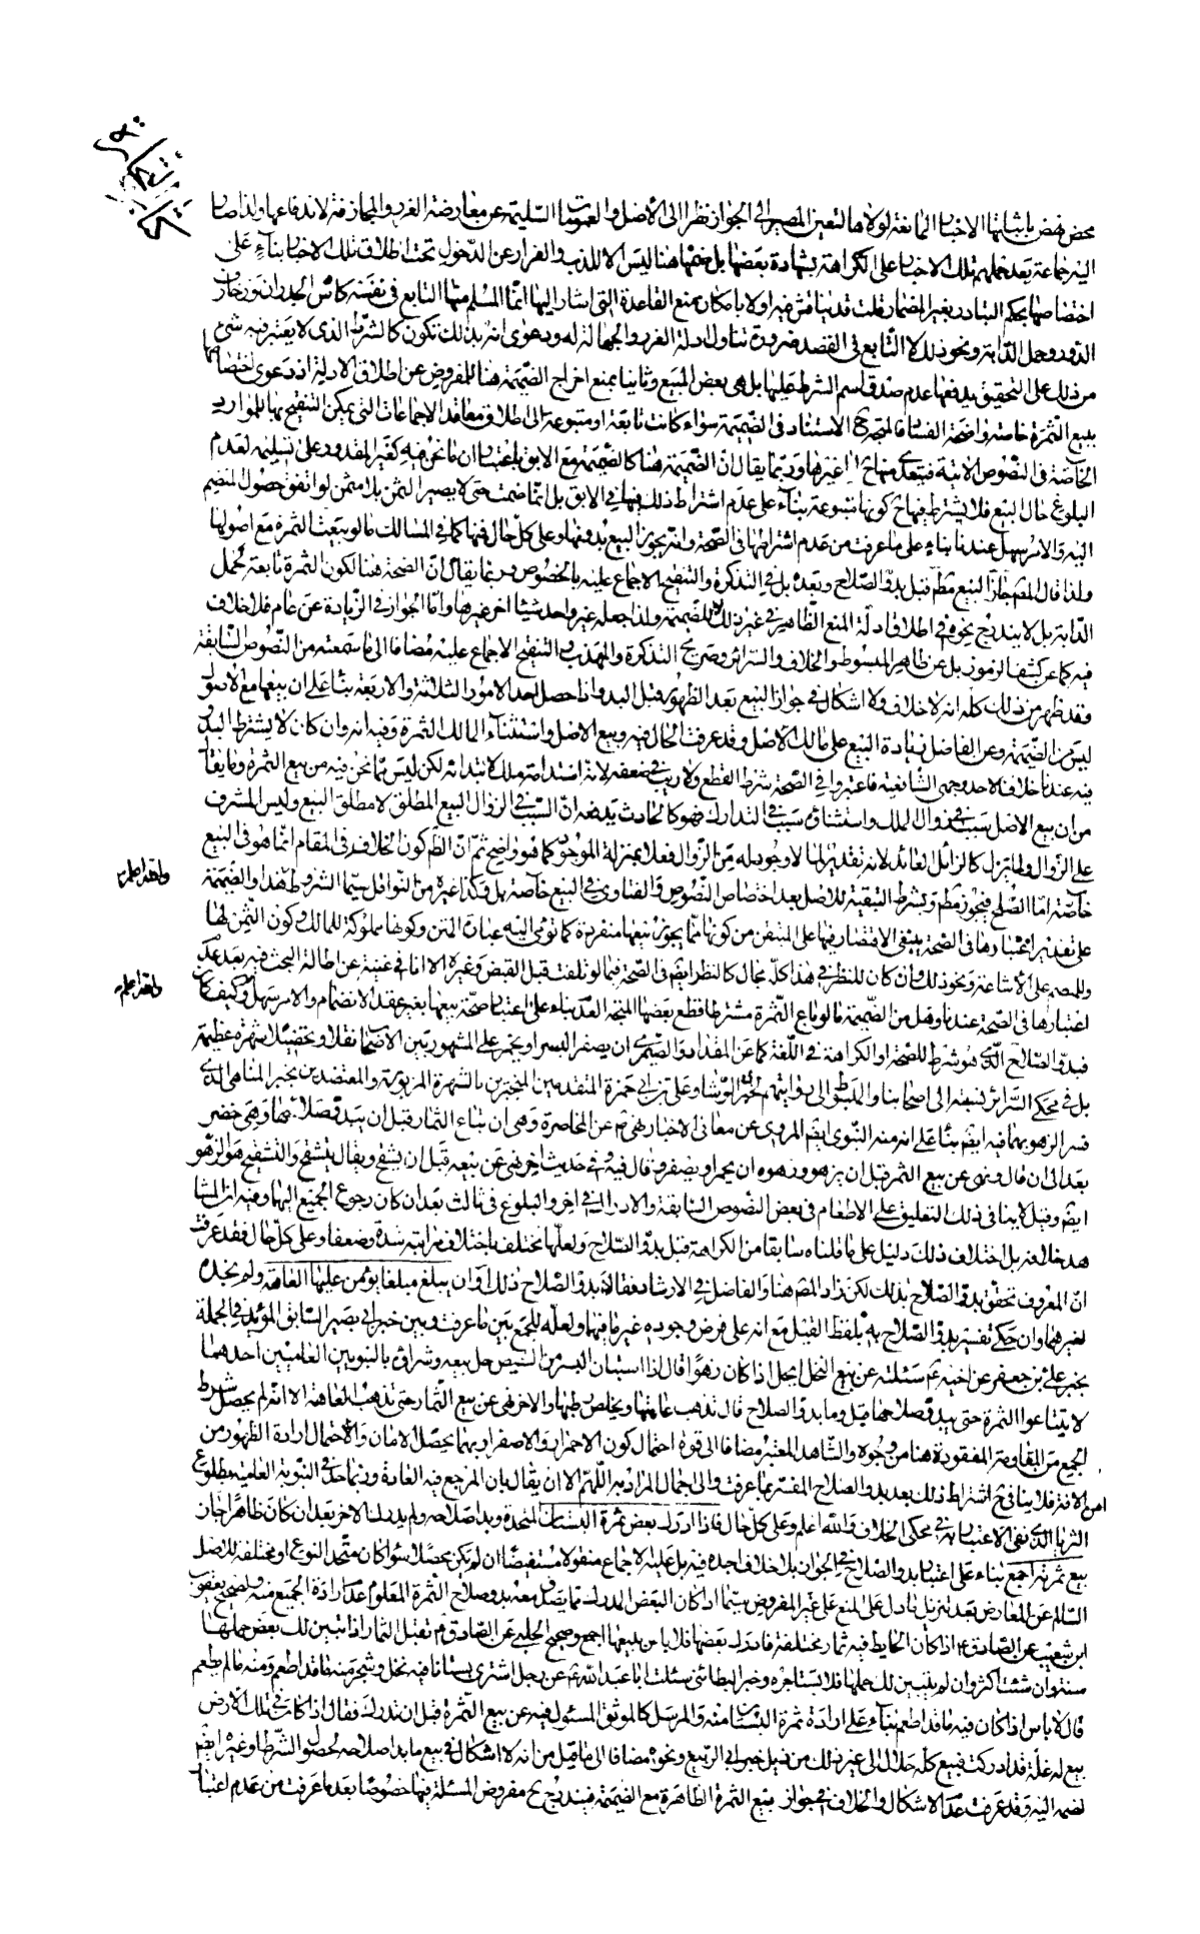 محض نهض باثباتها الاخبار المانعة لولاها لتعين المصير الى الجواز نظرا الى الاصل والعمومات السليمة عن معارضة الغرر والمجازفة لاندفاعها ولذا صار
اليه جماعة بعد حملهم تلك الاخبار على الكراهة بشهادة بعضها بل ضمها هنا ليس الا للذب والفرار عن الدخول تحت اطلاق تلك الاخبار بناء على
اختصاصها بحكم التبادر بغير المضمار قلت قد يناقش فيه اولا بامكان منع القاعدة التى اشار اليها انما المسلم منها التابع فى نفسه كاس الجدران
الدور وحمل الدابة ونحو ذلك لا التابع فى القصد ضرورة تناول ادلة الغرر والجهالة له ودعوى انه بذلك تكون كالشرط الذى لا يعتبر فيه شئ
من ذلك على التحقيق يدفعها عدم صدق اسم الشرط عليها بل هى بعض المبيع وثانيا بمنع اخراج الضميمة هنا للمفروض عن اطلاق الادلة اذ دعوى اختصاصها
ببيع الثمرة خاصة واضحة الفساد فالمتجه ح الاستناد فى الضميمة سواء كانت تابعة او متبوعة الى اطلاق معاقد الاجماعات التى يمكن التنقيح بها للموارد
الخاصة فى النصوص الاتية فيتعدى منها ح الى غيرها وربما يقال ان الضميمة هنا كالضميمة مع الابق باعتبار ان ما نحن فيه كغير المقدور على تسليمه لعدم
البلوغ حال البيع فلا يشترط فيها ح كونها متبوعة بناء على عدم اشتراط ذلك فيها فى الابق بل انما ضمت حتى لا يصير الثمن بلا مثمن لو اتفق حصول المنضم
اليه والامر سهل عندنا بناء على ما عرفت من عدم اشتراطها فى الصحة وانه يجوز البيع بدونها وعلى كل حال فيها كما فى المسالك ما لو بيعت الثمرة مع اصولها
ولذا قال المص جاز البيع مطم قبل بدو الصلاح وبعده بل فى التذكرة والتنقيح الاجماع عليه بالخصوص وربما يقال ان الصحة هنا لكون الثمرة تابعة كحمل
الدابة بل لا يندرج نحوه فى اطلاق ادلة المنع الظاهر فى غير ذلك لا للضميمة ولذا جعله غير واحد شيئا اخر غيرها واما الجواز فى الزيادة عن عام فلا خلاف
فيه كما عن كشف الرموز بل عن ظاهر المبسوط والخلاف والسرائر وصريح التذكرة والمهذب والتنقيح الاجماع عليه مضافا الى ما سمعته من النصوص السابقة
وقد ظهر من ذلك كله انه لا خلاف ولا اشكال فى جواز البيع بعد الظهور قبل البدو اذا حصل احد الامور الثلاثة والاربعة بناء على ان بيعها مع الاصول
ليس من الضميمة وعن الفاضل زيادة البيع على مالك الاصل وقد عرفت الحال فيه وبيع الاصل واستثناء المالك الثمرة وفيه انه وان كان لا يشترط البدو
فيه عندنا خلافا لاحد وجهى الشافعية فاعتبروا فى الصحة شرط القطع ولا ريب فى ضعفه لانه استدامة ملك لا ابتدائه لكن ليس مما نحن فيه من بيع الثمرة وما يقال
من ان بيع الاصل سبب فى زوال الملك واستثنائه سبب فى التدارك فهو كالحادث يدفعه ان السبب فى الزوال البيع المطلق لا مطلق البيع وليس المشرف
على الزوال ولما يزل كالزائل العائد لانه تقدير لما لا وجود له من الزوال فعلا بمنزلة الموجود كما هو واضح ثم ان الظ كون الخلاف فى المقام انما هو فى البيع
خاصة اما الصلح فيجوز مطم وبشرط التبقية للاصل بعد اختصاص النصوص والفتاوى فى البيع خاصة بل وكذا غيره من النواقل سيما الشروط هذا والضميمة
على تقدير اعتبارها فى الصحة ينبغى الاقتصار فيها على المتيقن من كونها مما يجوز بيعها منفردة كما تومى اليه عبارة المتن وكونها مملوكة للمالك وكون الثمن لها
وللمضم على الاشاعة ونحو ذلك وان كان للنظر فى هذا كله مجال كالنظر ايضم فى الصحة فيما لو تلفت قبل القبض وغيره الا انا فى غنية عن اطالة البحث فيه بعد عدم
اعتبارها فى الصحة عندنا وهل من الضميمة ما لو باع الثمرة مشترطا قطع بعضها المتجه العدم بناء على اعتبار صحة بيعها بغير عقد الانضمام والامر سهل وكيف كان
فبدو الصلاح الذى هو شرط للصحة او الكراهة فى اللغة كما عن المقداد والصيمرى ان يصفر البسر او يحمر على المشهور بين الاصحاب نقلا وتحصيلا شهرة عظيمة
بل فى محكى السرائر نسبته الى اصحابنا والمبسوط الى رواياتهم لخبر الوشا وعلى بن ابى حمزة المتقدمين المنجبرين بالشهرة المزبورة والمعتضدين بخبر المناهى الذى
فسر الزهو بهما فيه ايضم بناء على انه منه النبوى ايضم المروى عن معانى الاخبار نهى ص عن المخاصرة وهى ان تباع الثمار قبل ان يبدو صلاحها وهى خضر
بعد الى ان قال ونهى عن بيع الثمر قبل ان يزهو وزهوه ان يحمر او يصفر وقال فيه وفى حديث اخر نهى عن بيعه قبل ان يشقح ويقال يشقح والتشقيح هو الزهو
ايضم وقيل لا ينافى ذلك التعليق على الاطعام فى بعض النصوص السابقة والادراك فى اخر والبلوغ فى ثالث بعد ان كان رجوع الجميع اليهما وفيه ان المشاهد
هد خلافه بل اختلاف ذلك دليل على ما قلناه سابقا من الكراهة قبل بدو الصلاح ولعلها تختلف باختلاف مراتبه شدة وضعفا وعلى كل حال فقد عرفت
ان المعروف تحقق بدو الصلاح بذلك لكن زاد المصم هنا والفاضل فى الارشاد فقالا بدو الصلاح ذلك او ان يبلغ مبلغا يؤمن عليها العاهة ولم نجده
لغيرهما وان حكى تفسير بدو الصلاح به بلفظ القيل مع انه على فرض وجوده غير ما فيهما ولعله للجمع بين ما عرفت وبين خبر ابى بصير السابق المؤيد فى الجملة
بخبر على بن جعفر عن اخيه ع سئلته عن بيع النخل ايحل اذا كان زهوا قال اذا استبان البسر من الشيص حل بيعه وشراؤه بالنبويين العاميين احدهما
لا تبتاعوا الثمرة حتى يبدو صلاحها قيل وما بدو الصلاح قال تذهب عاهتها ويخلص طيبها والاخر نهى عن بيع الثمار حتى تذهب العاهة الا انه لم يحصل شرط
الجمع من المقاومة المفقودة هنا من وجوه والشاهد المعتبر مضافا الى قوة احتمال كون الاحمرار والاصفرار بهما يحصل الامان والاحتمال ارادة الظهور من
امن الافة فلا ينافى ح اشتراط ذلك بعد بدو الصلاح المفسر بما عرفت والى اجمال المراد به اللهم الا ان يقال بان المرجع فيه العادة وربما حد فى النبوية العامية بطلوع
الثريا الذى نفى الاعتبار به فى محكى الخلاف والله اعلم وعلى كل حال فاذا ادرك بعض ثمرة البستان المتحدة وبدا صلاحه ولم يدرك الاخر بعد ان كان ظاهرا جاز
بيع ثمرته اجمع بناء على اعتبار بدو الصلاح فى الجواز بلا خلاف اجده فيه بل عليه الاجماع منقولا مستفيضا ان لم يكن محصلا سواء كان متحد النوع او مختلفه للاصل
السالم عن المعارض بعد تنزيل ما دل على المنع على غير المفروض سيما اذا كان البعض المدرك مما يصدق معه بدو صلاح الثمرة المعلوم عدم ارادة الجميع منه وصحيح يعقوب
ابن شعيب عن الصادق ع اذا كان الحايط فيه ثمار مختلفة فادرك بعضها فلا باس ببيعها اجمع وصحيح الحلبى عن الصادق ع تقبل الثمار اذا تبين لك بعض حملها
سنة وان شئت اكثر وان لم يتبين لك حملها فلا تستاجره وخبر البطائنى سئلت ابا عبد الله ع عن رجل اشترى بستانا فيه نخل وشجر منه ما قد اطعم ومنه ما لم يطعم
قال لا باس اذا كان فيه ما قد اطعم بناء على ارادة ثمرة البستان منه والمرسل كالموثق المسئول فيه عن بيع الثمرة قبل ان تدرك فقال اذا كان فى تلك الارض
بيع له غلة قد ادركت فبيع كله حلال الى غير ذلك من ذيل خبر ابى الربيع ونحوه مضافا الى ما قيل من انه لا اشكال فى بيع ما بدا صلاحه لحصول الشرط وغيره ايضم
لضمه اليه وقد عرفت عدم الاشكال والخلاف فى جواز بيع الثمرة الظاهرة مع الضميمة فيندرج ح مفروض المسئلة فيها خصوصا بعد ما عرفت من عدم اعتبار